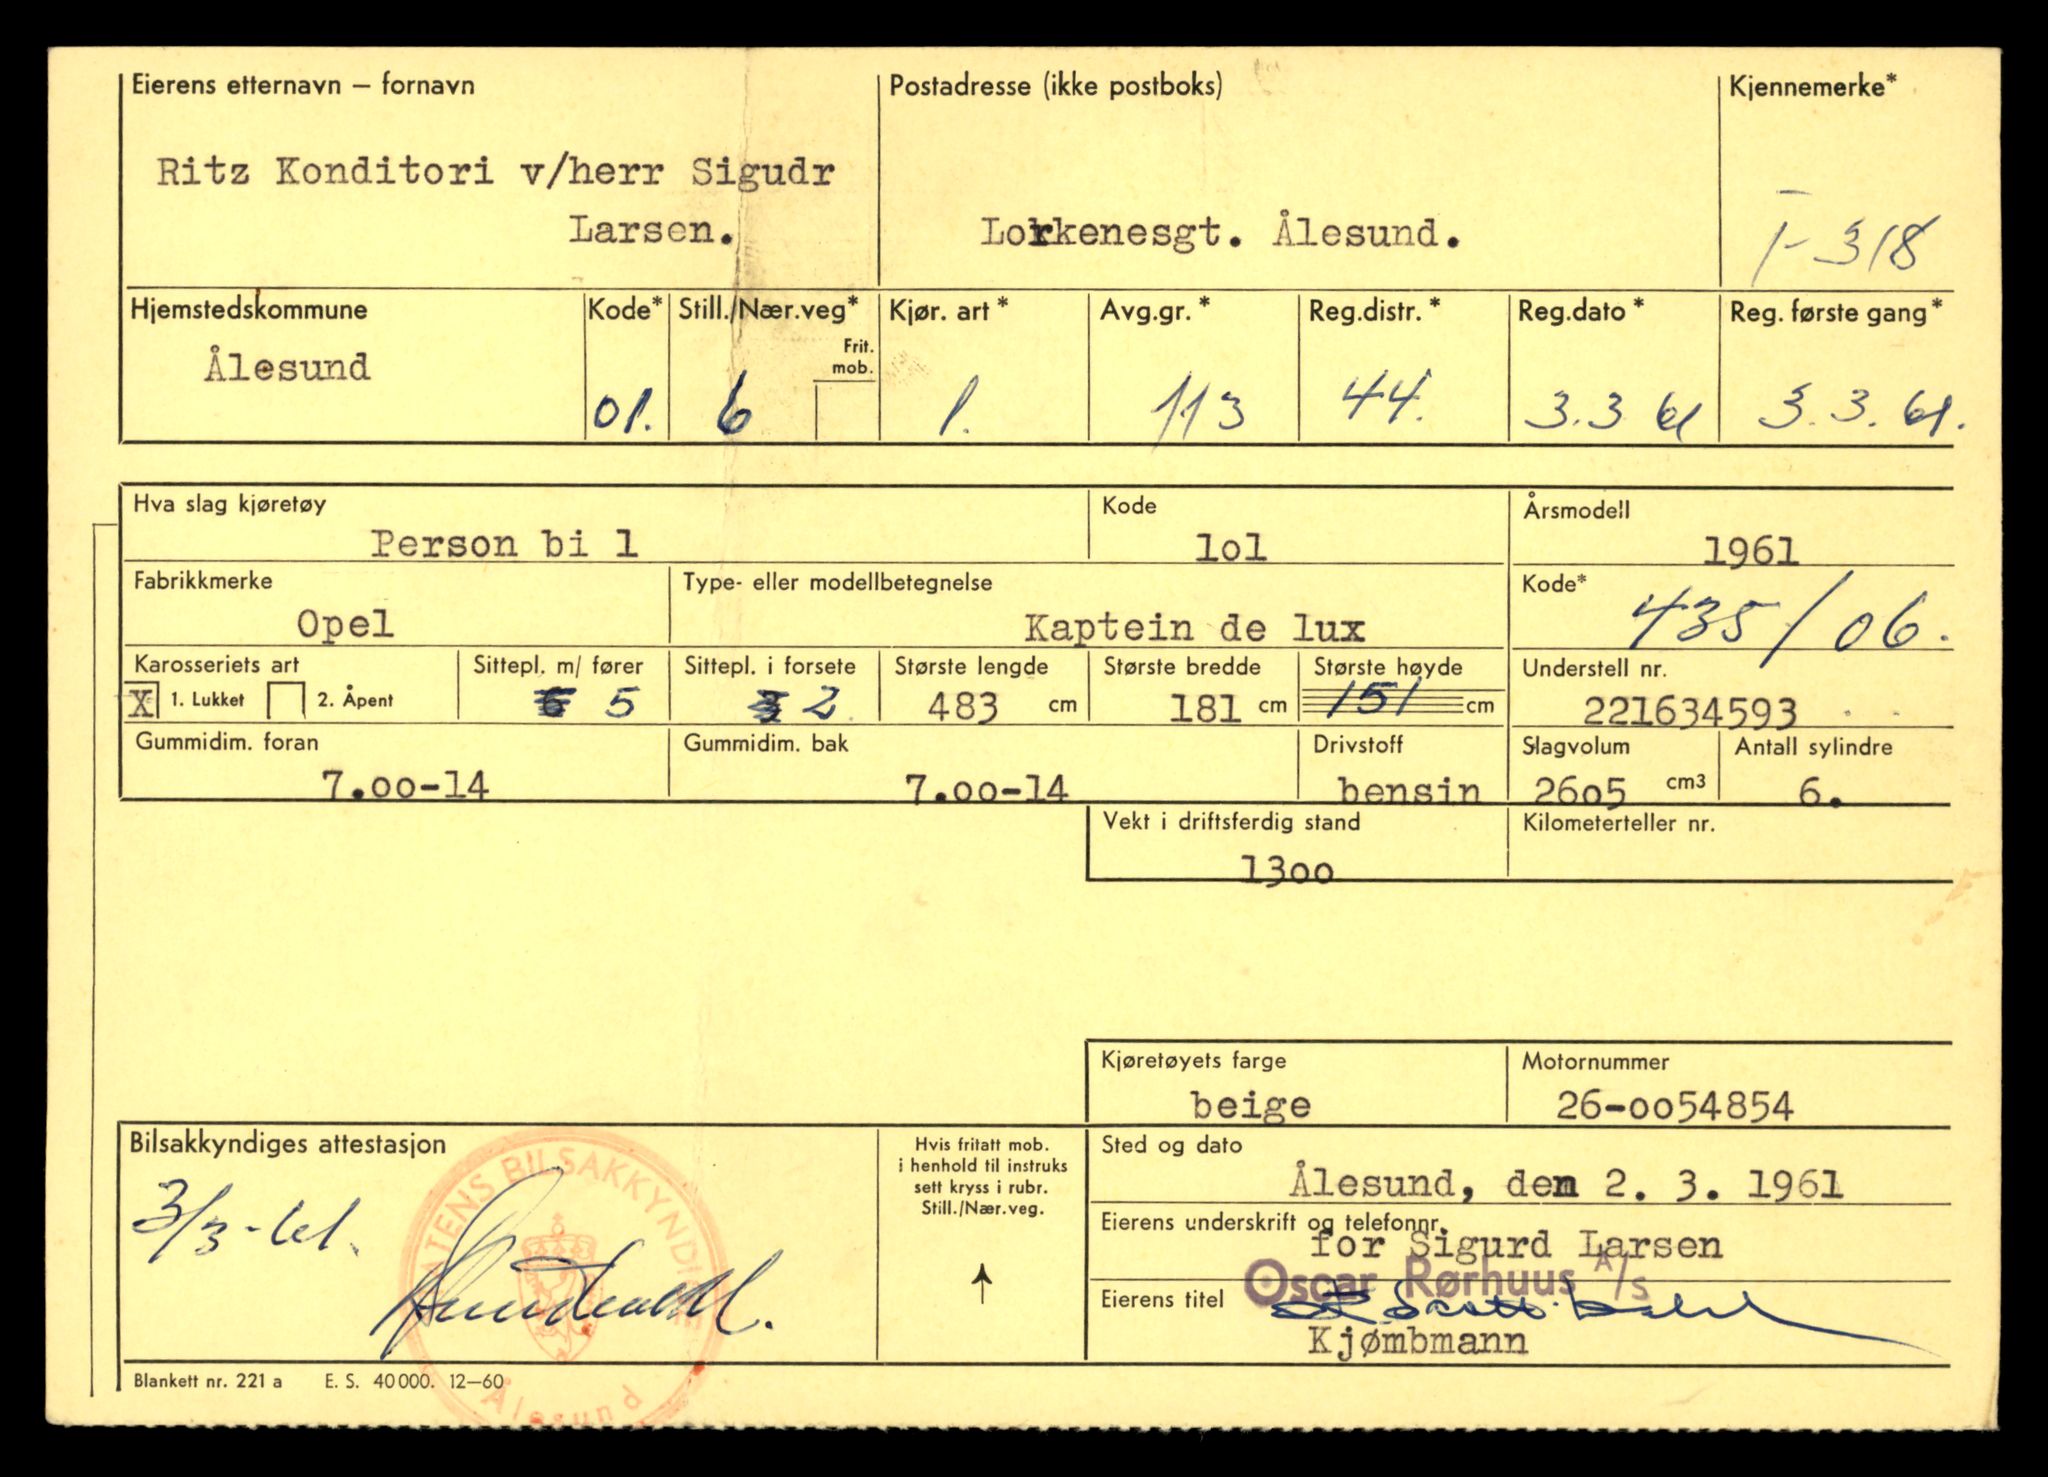 Eierens etternavn — fornavn
Postadresse (ikke postboks)
Kjennemerke*
Ritz Konditori v/herr Sigudr
Larsen.
Lorkenesgt. Ålesund.
T-318
Hjemstedskommune
Kode*
Still./Nær.veg*
Kjør. art*
Avg.gr.*
Reg.distr.*
Reg.dato*
Reg. første gang*
Frit.
mob.
Ålesund
01.
6
1.
113
44.
3.3 61
3.3.61.
Hva slag kjøretøy
Kode
Årsmodell
Person bi l
lol
1961
Fabrikkmerke
Type- eller modellbetegnelse
Kode*
Opel
Kaptein de lux
435/06.
Karosseriets art
Sittepl. m/ fører
Sittepl. i forsete
Største lengde
Største bredde
Største høyde
Understell nr.
X 1. Lukket
2. Åpent
6 5
3 2
483 cm
181 cm
151 cm
221634593
Gummidim. foran
Gummidim. bak
Drivstoff
Slagvolum
Antall sylindre
7.oo-14
7.oo-14
bensin
26o5 cm3
6.
Vekt i driftsferdig stand
Kilometerteller nr.
13oo
Kjøretøyets farge
Motornummer
beige
26-oo54854
Bilsakkyndiges attestasjon
3/3-61.
STATENS BILSAKKYNDIGE
Ålesund
Hvis fritatt mob.
i henhold til instruks
sett kryss i rubr.
Still./Nær.veg.
Sted og dato
Ålesund, den 2. 3. 1961
Eierens underskrift og telefonnr.
for Sigurd Larsen
Oscar Rørhuus A/S
Eierens titel
Kjømbmann
Blankett nr. 221 a E. S. 40 000. 12—60